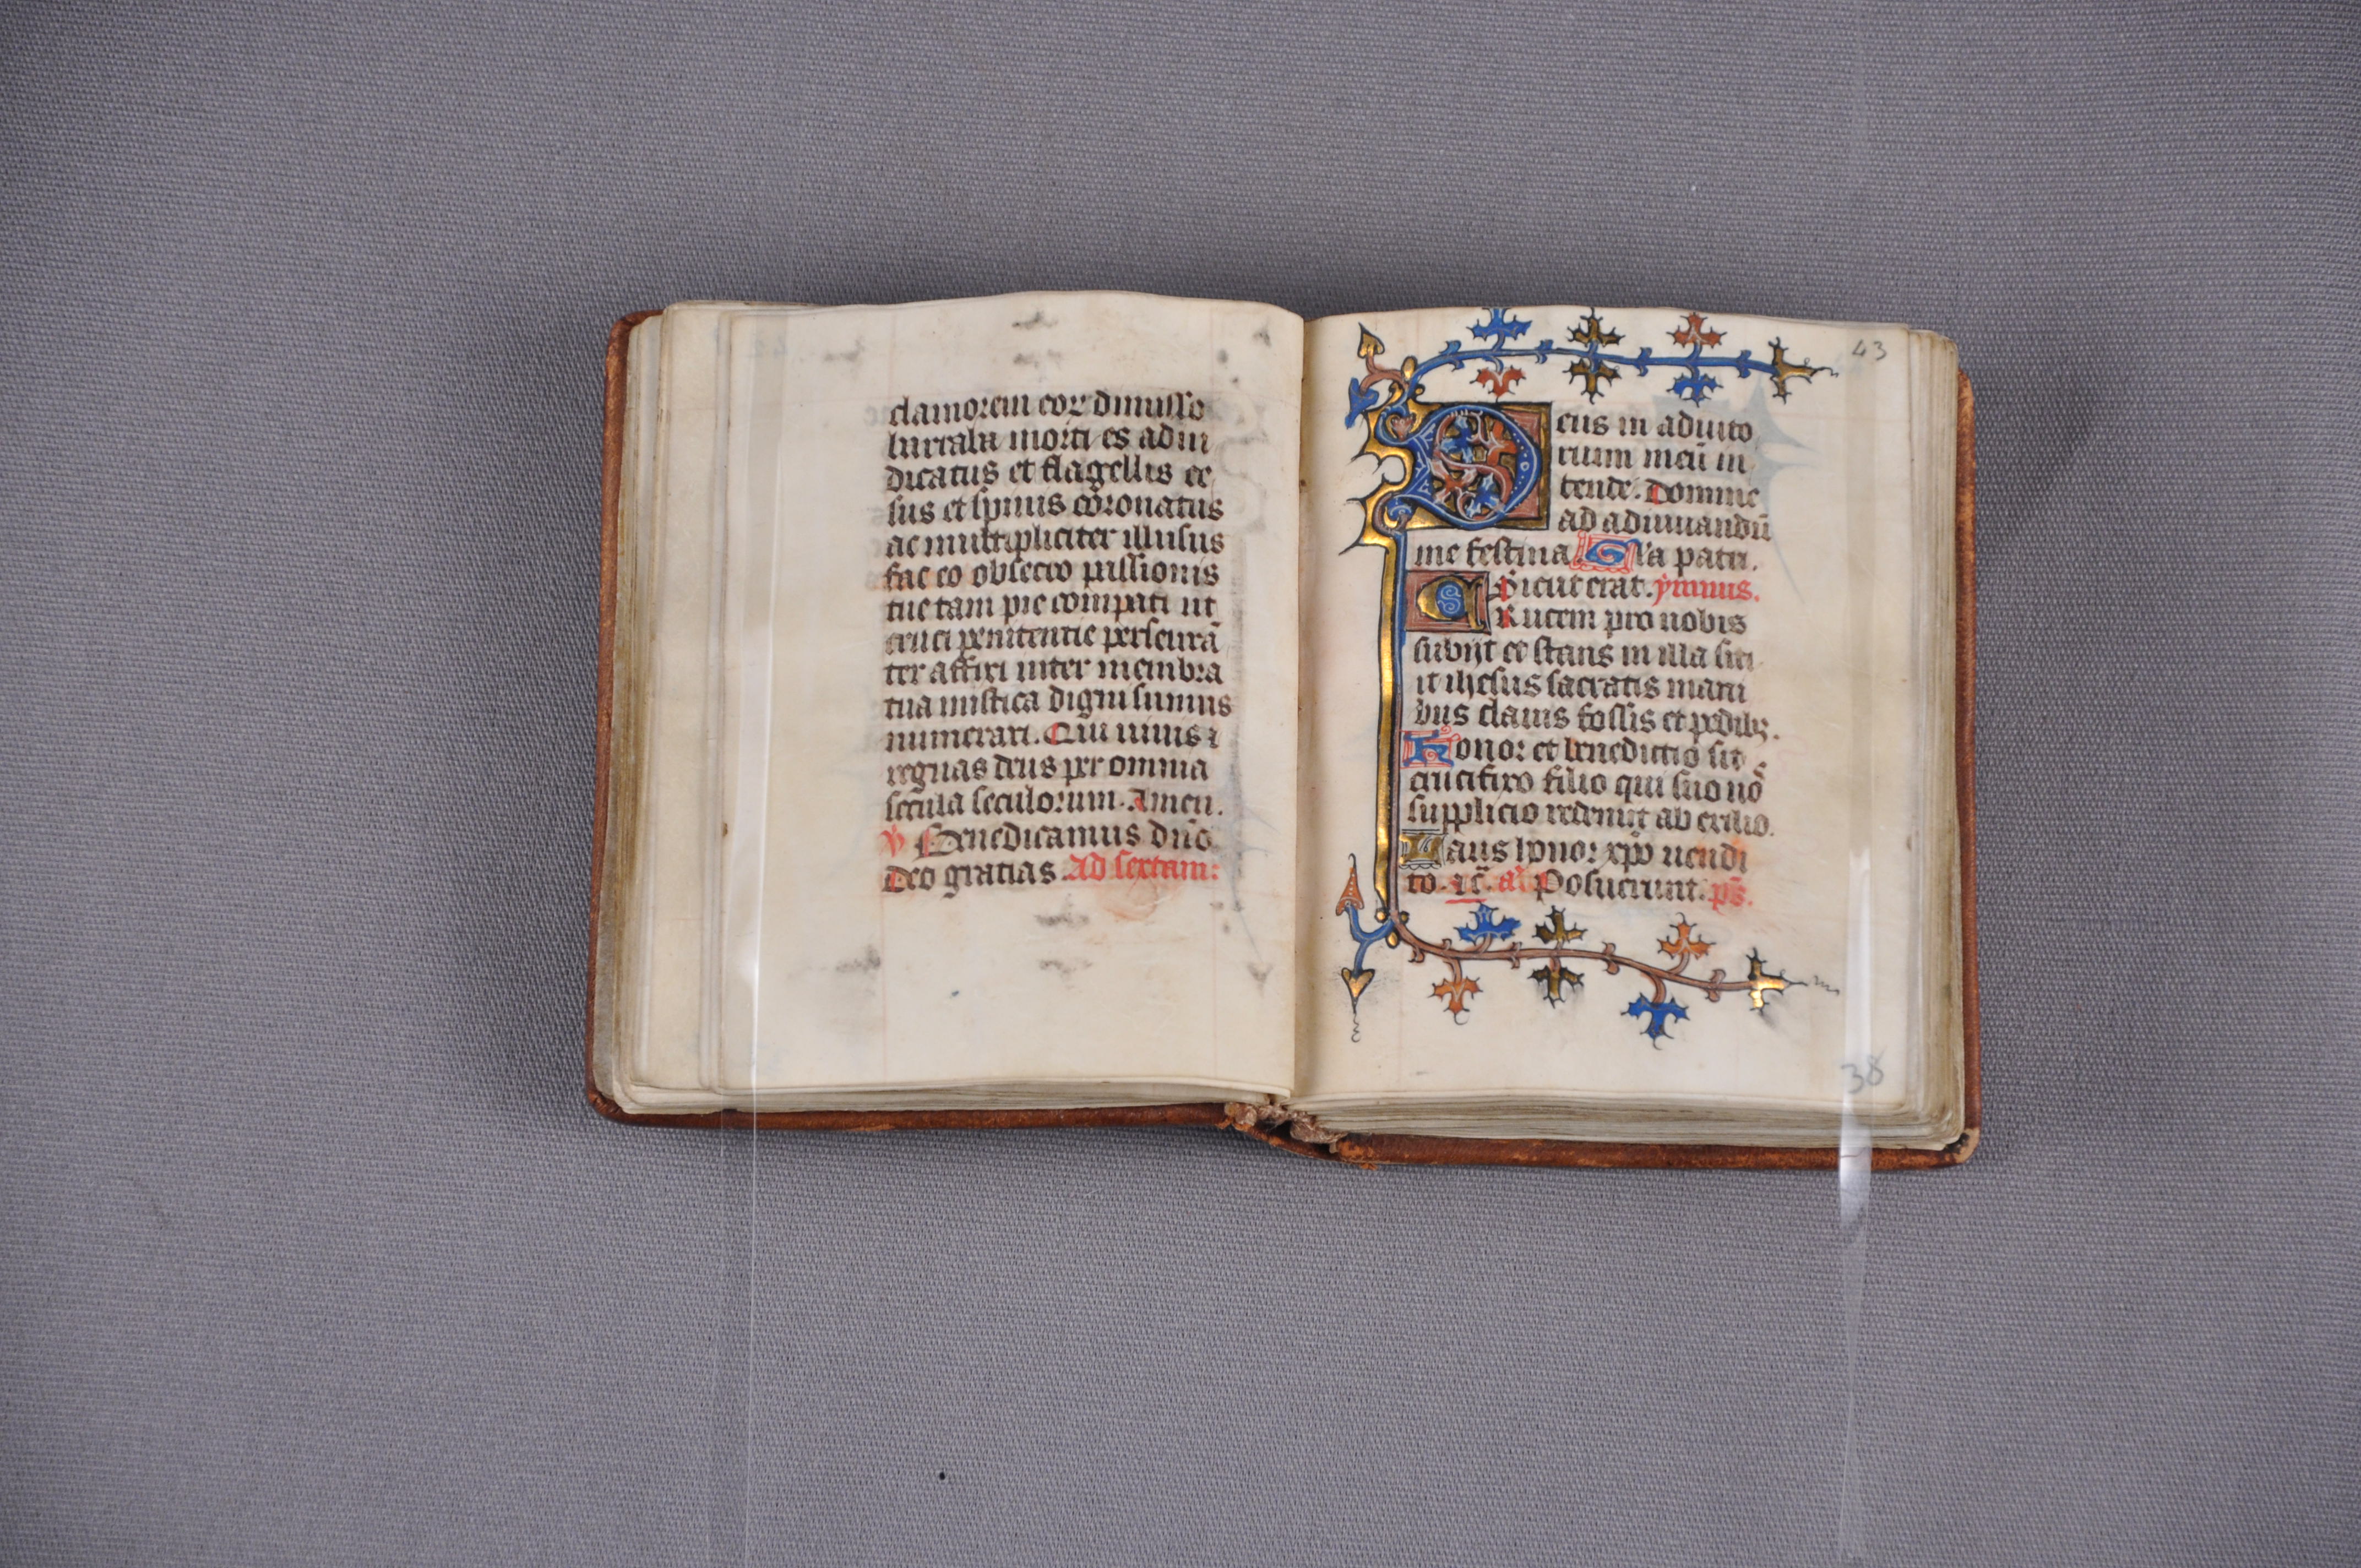 clamorem cor dimisso
turbala morti es adiu
dicatus et flagellis ce
sus et spinis coronatus
ac multipliciter illusus
fac eo obsecro passionis
tue tam pie compati ut
cruci penitentie perseurā
ter affixi inter membra
tua mistica digni sumus
numerari. Qui uiuis ⁊
regnas deus per omnia
secula seculorum. Amen.
℣ Benedicamus dn̄o
Deo gratias. Ad sextam:
43
Deus in adiuto
rium meū in
tende. Domine
ad adiuuandū
me festina Gl'a patri.
Sicut erat. ymnus.
Crucem pro nobis
subijt et stans in illa siti
it ihesus sacratis mani
bus clauis fossis et pedibꝫ.
Honor et benedictio sit
crucifixo filio qui suo nō
supplicio redemit ab exilio.
Laus honor xp̄o uendi
to. ⁊c̄. añ Posuerunt. ps̄.
38